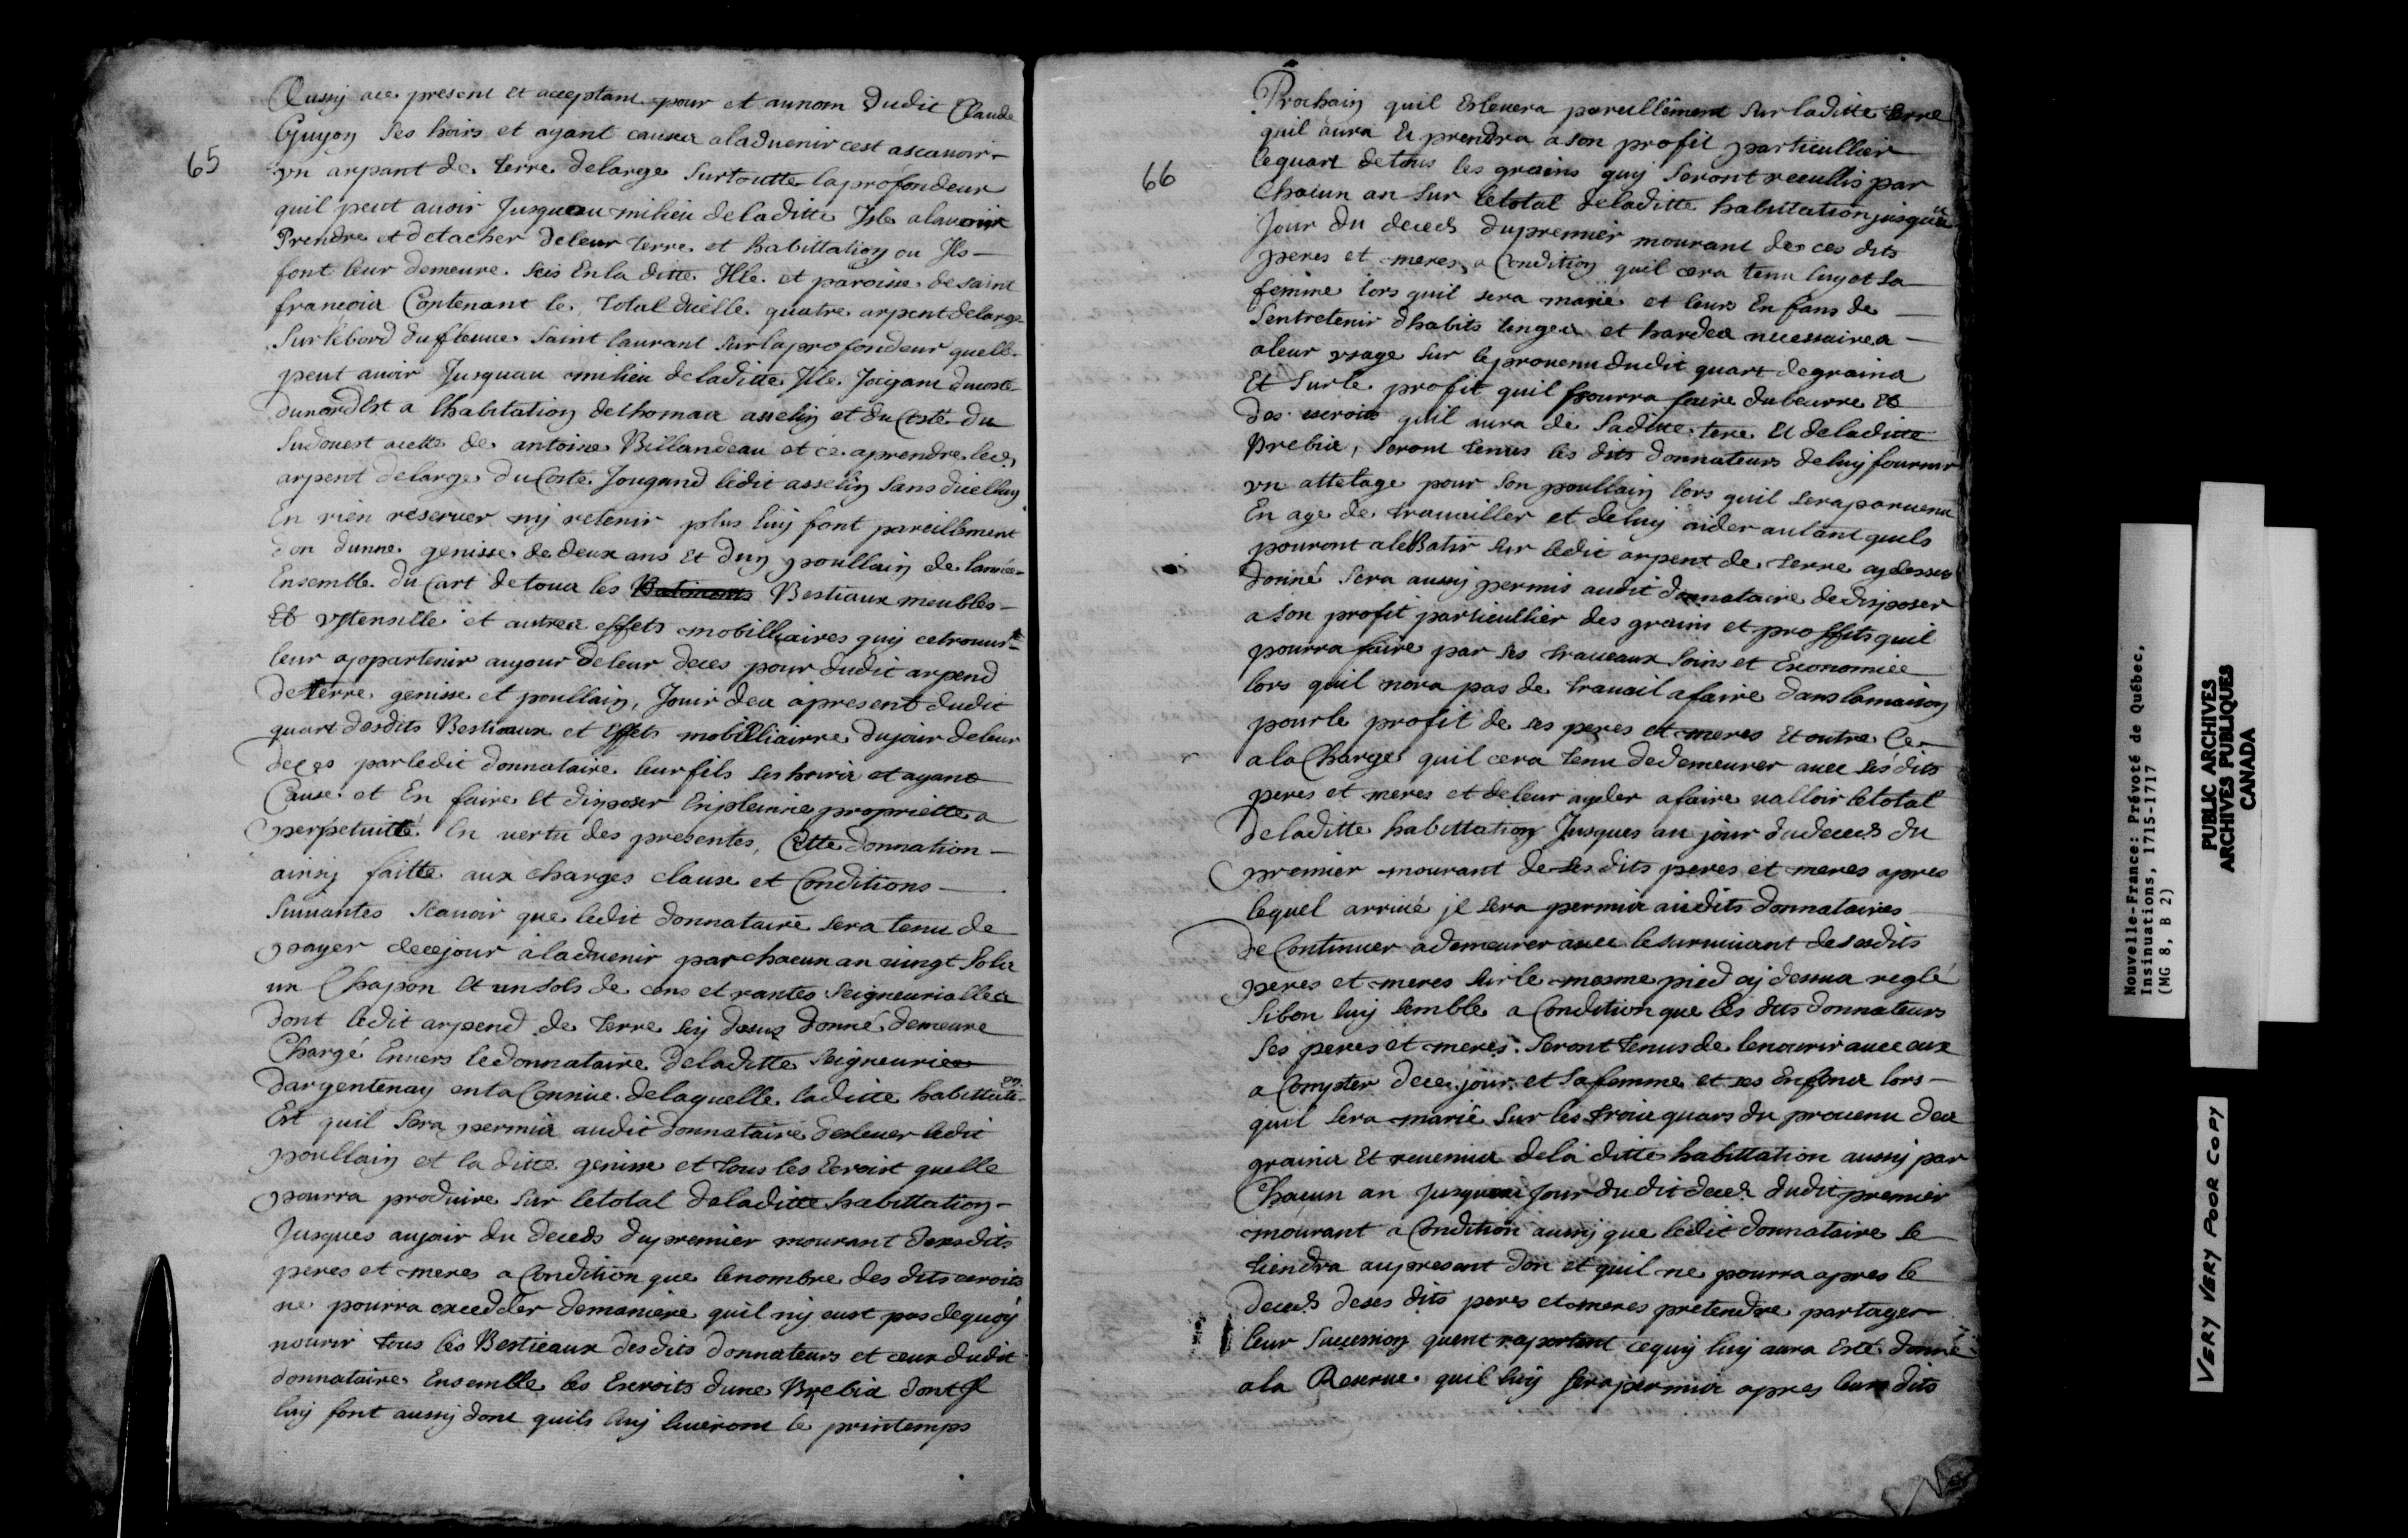 65
Aussy ace present et acceptant pour et aunom dudit Claude
Guyon Ses hoirs et ayant causes aladuenir cest ascauoir
vn arpant de terre delarge Surtoutte laprofondeur
quil peut auoir Jusqueau milieu deladitte Isle alauoir
Prendre et detacher deleur terre et habittation ou Jls
font leur demeure Scis Enla ditte Jlle et paroisse desaint
francois Contenant le total dicelle quatre arpent delarge
Surlebord dufleuue Saint laurant Surlaprofondeur quelle
peut auoir Jusquau milieu deladitte Jsle Joigant ducoste
dunordEst a lhabitation dethomas asselin et du Costé du
Sudouest acelle de antoine Billandeau et ce aprendre led.
arpent delarge du Coste Jougand ledit asselin Sans dicelluy
En rien reseruer ny retenir plus luy font pareillement
don dunne genisse de deux ans Et dun poullain de lannée
Ensemble du Cart detous les Batiments Bestiaux meubles
Et vstensille et autres effets mobilliaires quy cetrouurt
leur apopartenir aujour deleur deces pour dudit arpend
deterre genisse et poullain, Jouir des apresent dudit
quart desdits Bestiaux et Effets mobilliairre dujour deleur
deces parledit donnataire leurfils Ses hoirs et ayant
Cause et En faire Et disposer Enpleinne proprietté a
perpetuitté En uertu des presentes, Cette donnation
ainsy faitte aux charges clause et Conditions
Suiuantes Scauoir que ledit donnataire Sera tenu de
payer decejour aladuenir parchacun an uingt Sols
un Chapon Et unsols de cens et rantes Seigneurialles
dont ledit arpend de terre Sy desus donné demeure
Chargé Enuers ledonnataire deladitte Seigneurie
dargentenay enla Cenniue delaquelle laditte habittation
Est quil Sera permis audit donnataire desleuer ledit
poullain et la ditte genisse et tous les Ecroist quelle
pourra produire Sur letotal deladitte habittation
Jusques aujour du deceds dupremier mourant desesdits
peres et meres a Condition que lenombre des dits ecroits
ne pourra excedder demaniere quil ny eust pas dequoy
nourir tous les Bestieaux desdits donnateurs et ceux dudit
donnataire Ensemble les Encroits dune Brebis dont Jl
luy font aussy dont quils luy liueront le printemps
66
Prochain quil Esleuera pareillement Sur laditte terre
quil aura Et prendra a son profit particullier
lequart detous les grains quy Seront recullis par
Chacun an Sur letotal deladitte habittation jusquau
Jour du deceds dupremier mourant de ces dits
peres et meres a Condition quil cera tenu luy et Sa
femme lors quil sera marié et leurs Enfans de
Sentretenir dhabits linges et hardes necessaires
aleur vsage Sur leprouenu dudit quart degrains
Et Surle profit quil pourra faire dubeurre Et
des ecroits quil aura de Saditte tere Et deladitte
Brebis, Seront tenus les dits donnateurs deluy fournir
vn attelage pour Son poullain lors quil Seraparuenu
En age de trauailler et deluy aider aultant quels
pouront aleBatir Sur ledit arpent de terre aydessus
donné Sera aussy permis audit donnataire dedisposer
a son profit particullier des grains et proffits quil
pourra faire par ses traueaux Soins et Exonomice
lors quil nora pas de trauail afaire dans lamaison
pourle profit de ses peres et meres Et outre Ce
ala Charge quil cera tenu dedemeurer auec Ses dits
peres et meres et deleur ayder afaire ualloir letotal
deladitte habittation Jusques au jour dudeceds du
premier mourant de Ses dits peres et meres apres
lequel arriué jl Sera permis audits donnataires
de Continuer ademeurer auec lesuruiuant desesdits
peres et meres Surle mesme pied ay desus reglé
Sibon luy Semble a Condition que les dits donnateurs
Ses peres et meres Seront tenus de lenourir auec eux
a Compter dece jour et Safemme et ses Enfens lors
quil Sera marié Sur les trois quars du prouenu des
grains Et reuenus delà ditte habittation aussy par
Chacun an Jusquau Jour dudit deceds dudit premier
mourant a Condition aussy que ledit donnataire Se
tiendra aupresent don et quil ne pourra apres le
deceds deses dits peres et meres pretendre partager
leur Succession quent raportant cequy luy aura Esté donné
ala Reserue quil luy Sera permis apres leurs dits
Nouvelle-France: Prévoté de Québec,
Insinuations, 1715-1717
(MG 8, B 2)
PUBLIC ARCHIVES
ARCHIVES PUBLIQUES
CANADA
VERY VERY POOR COPY